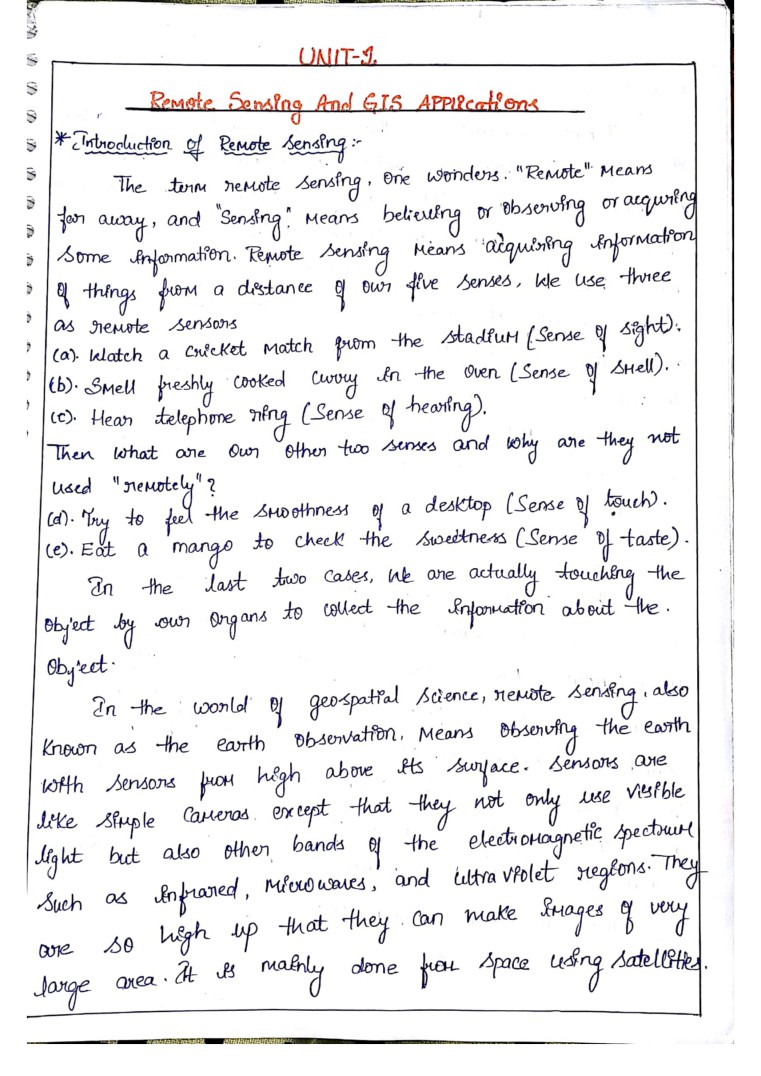 UNIT-1.
Remote Sensing And GIS Applications
* Introduction of Remote Sensing :-
The term remote sensing, one wonders. "Remote" Means
far away, and "Sensing". Means believing or observing or acquring
some information. Remote sensing Means acquiring information
of things from a distance of our five senses, We use three
as remote sensors
(a). Watch a cricket match from the stadium (Sense of sight).
(b). Smell freshly cooked curry in the oven (Sense of smell).
(c). Hear telephone ring (Sense of hearing).
Then what are our other two senses and why are they not
used "remotely"?
(d). Try to feel the smoothness of a desktop (Sense of touch).
(e). Eat a mango to check the sweetness (Sense of taste).
In the last two cases, We are actually touching the
object by our organs to collect the information about the.
Object.
In the world of geospatial science, remote sensing, also
known as the earth observation, Means observing the earth
with sensors from high above its surface. Sensors are
like simple cameras except that they not only use visible
light but also other bands of the electromagnetic spectrum
such as infrared, microwaves, and ultra violet regions. They
are so high up that they can make images of very
large area. It is mainly done from space using satellites.